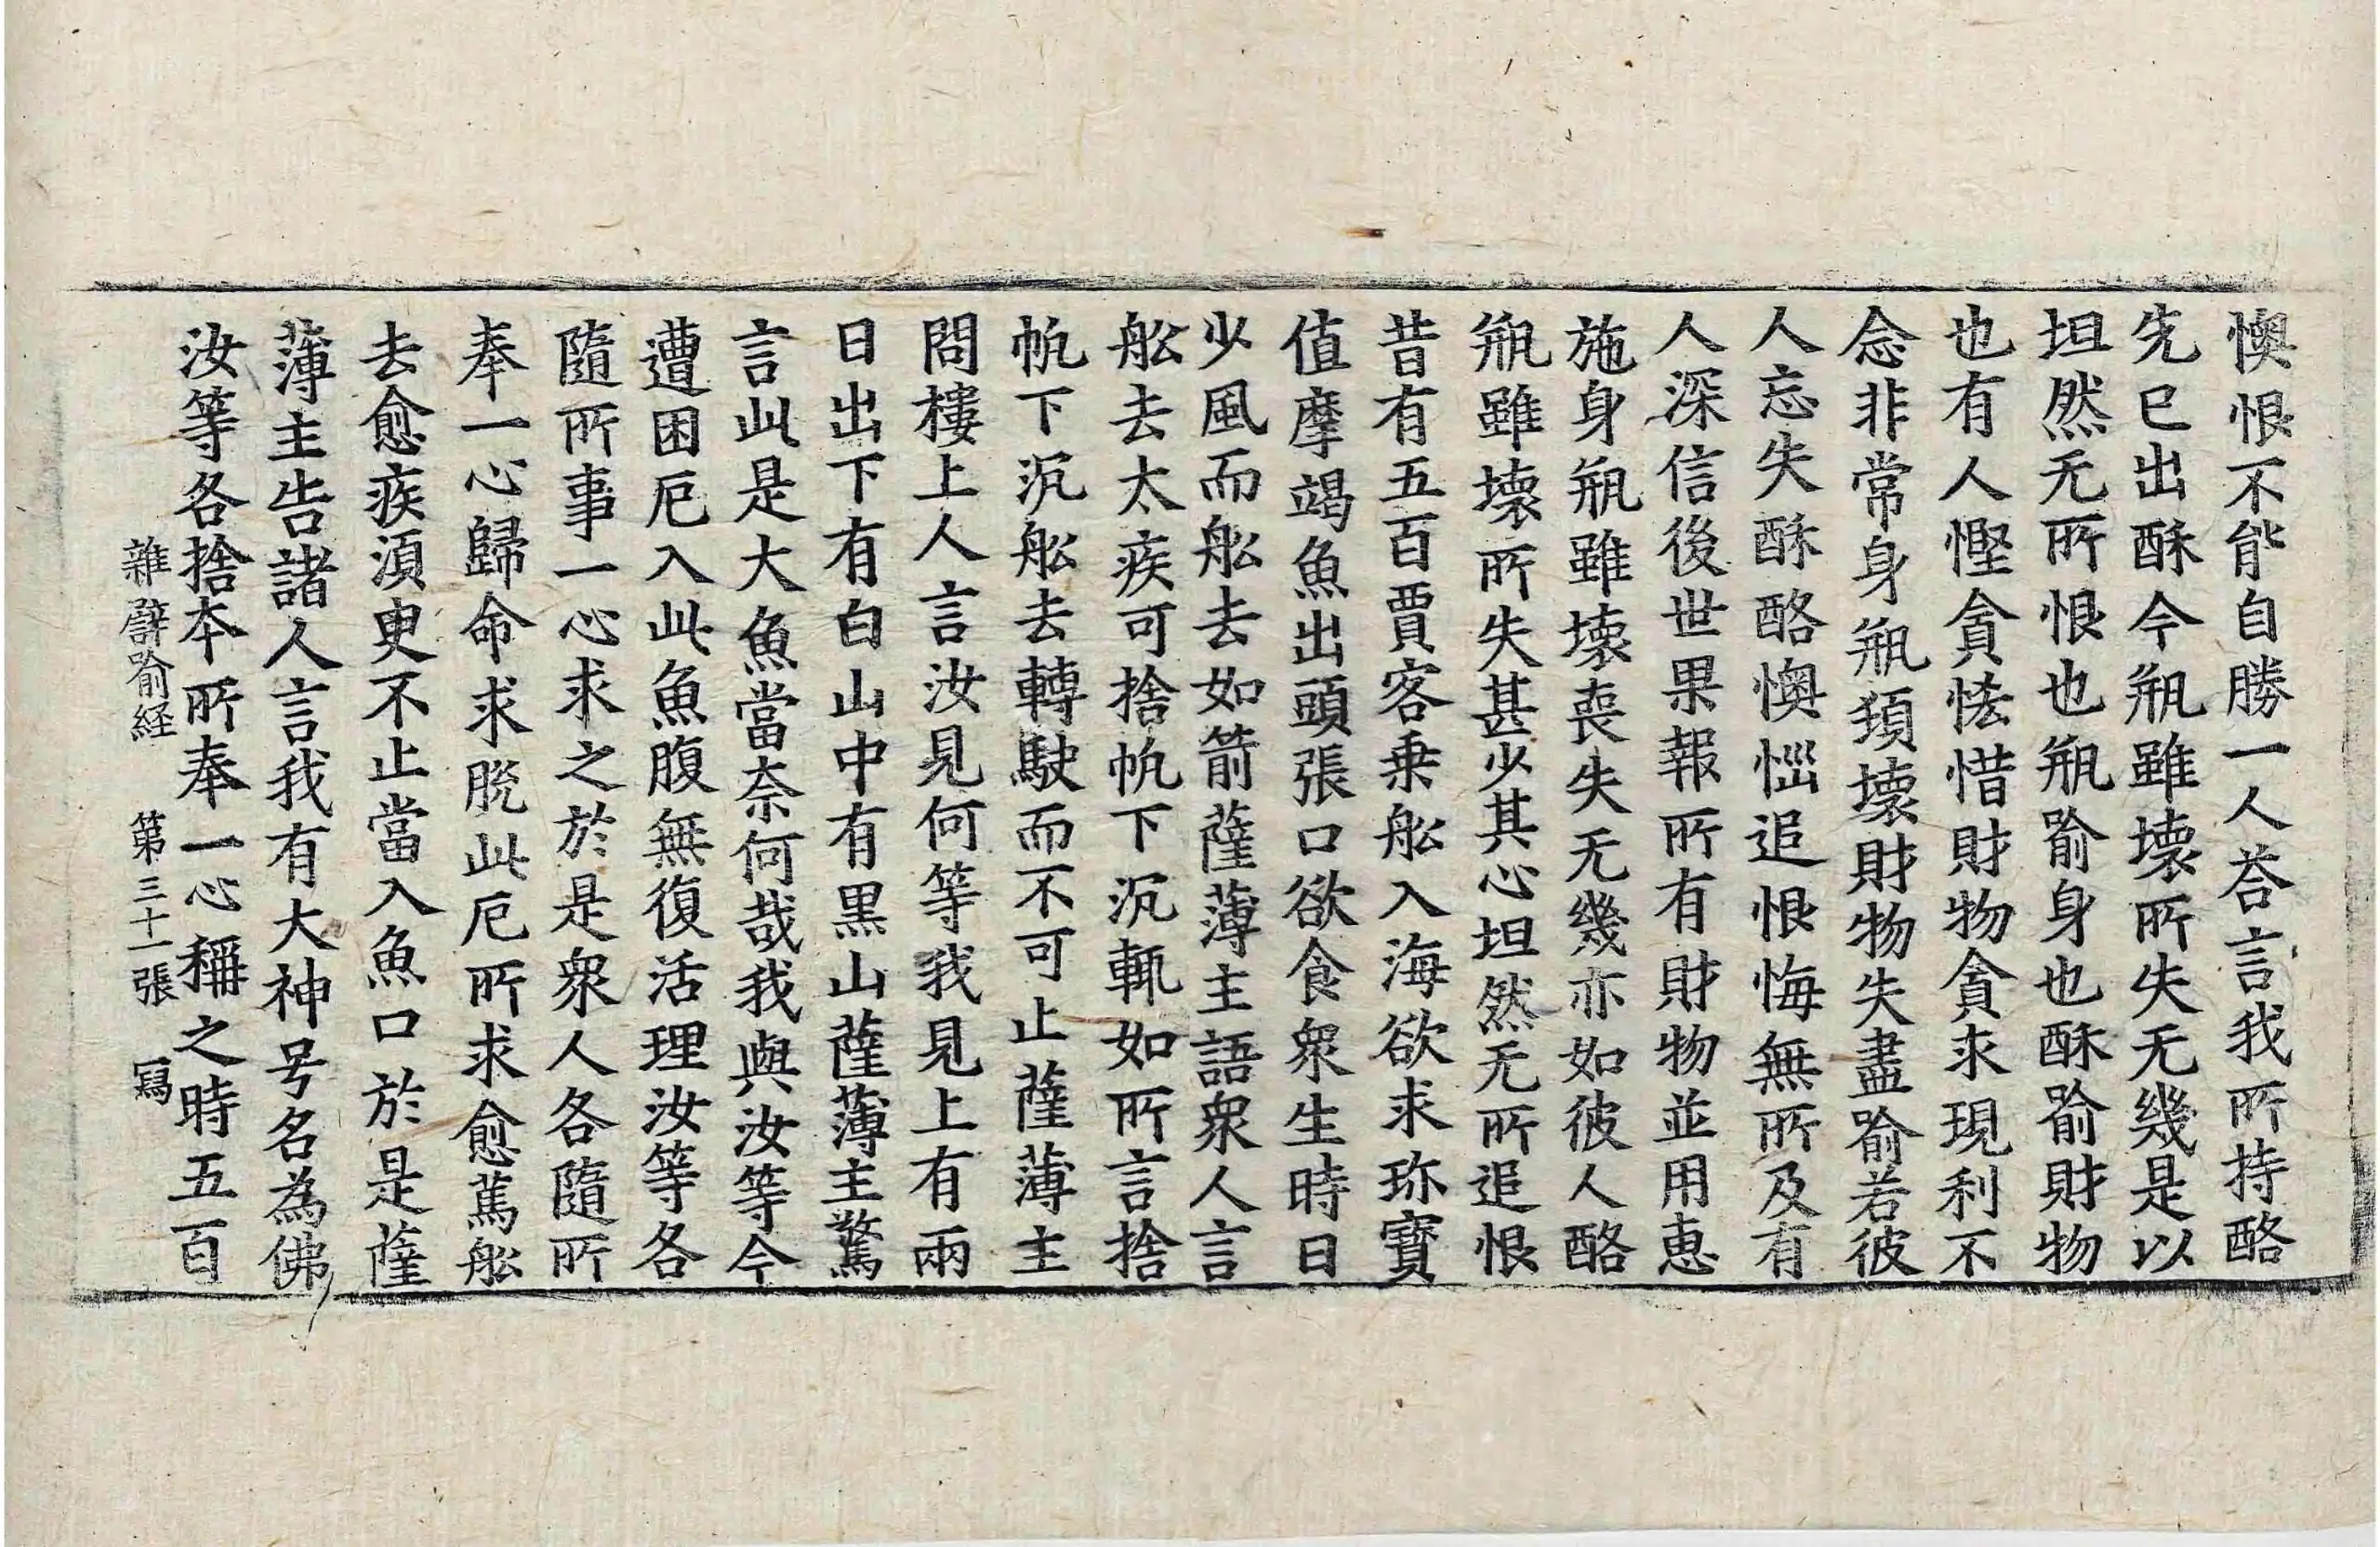 懊恨不能自勝一人荅言我所持酪
先已出酥今瓶雖壞所失无幾是以
坦然无所恨也瓶喻身也酥喻財物
也有人慳貪悋惜財物貪求現利不
念非常身瓶頊壞財物失盡喻若彼
人忘失酥酪懊惱追恨悔無所及有
人深信後世果報所有財物並用惠
施身瓶雖壞喪失无幾亦如彼人酪
瓶雖壞所失甚少其心坦然无所追恨
昔有五百賈客乗舩入海欲求珎寶
值摩竭魚出頭張口欲食衆生時日
少風而舩去如箭薩薄主語衆人言
舩去太疾可捨帆下沉輒如所言捨
帆下沉舩去轉駛而不可止薩薄主
問樓上人言汝見何等我見上有兩
日出下有白山中有黒山薩薄主驚
言此是大魚當奈何哉我與汝等今
遭困厄入此魚腹無復活理汝等各
隨所事一心求之於是衆人各隨所
奉一心歸命求脫此厄所求愈篤舩
去愈疾湏臾不止當入魚口於是薩
薄主告諸人言我有大神号名為佛
汝等各捨本所奉一心稱之時五百
雜譬喻経 第三十一張 寫